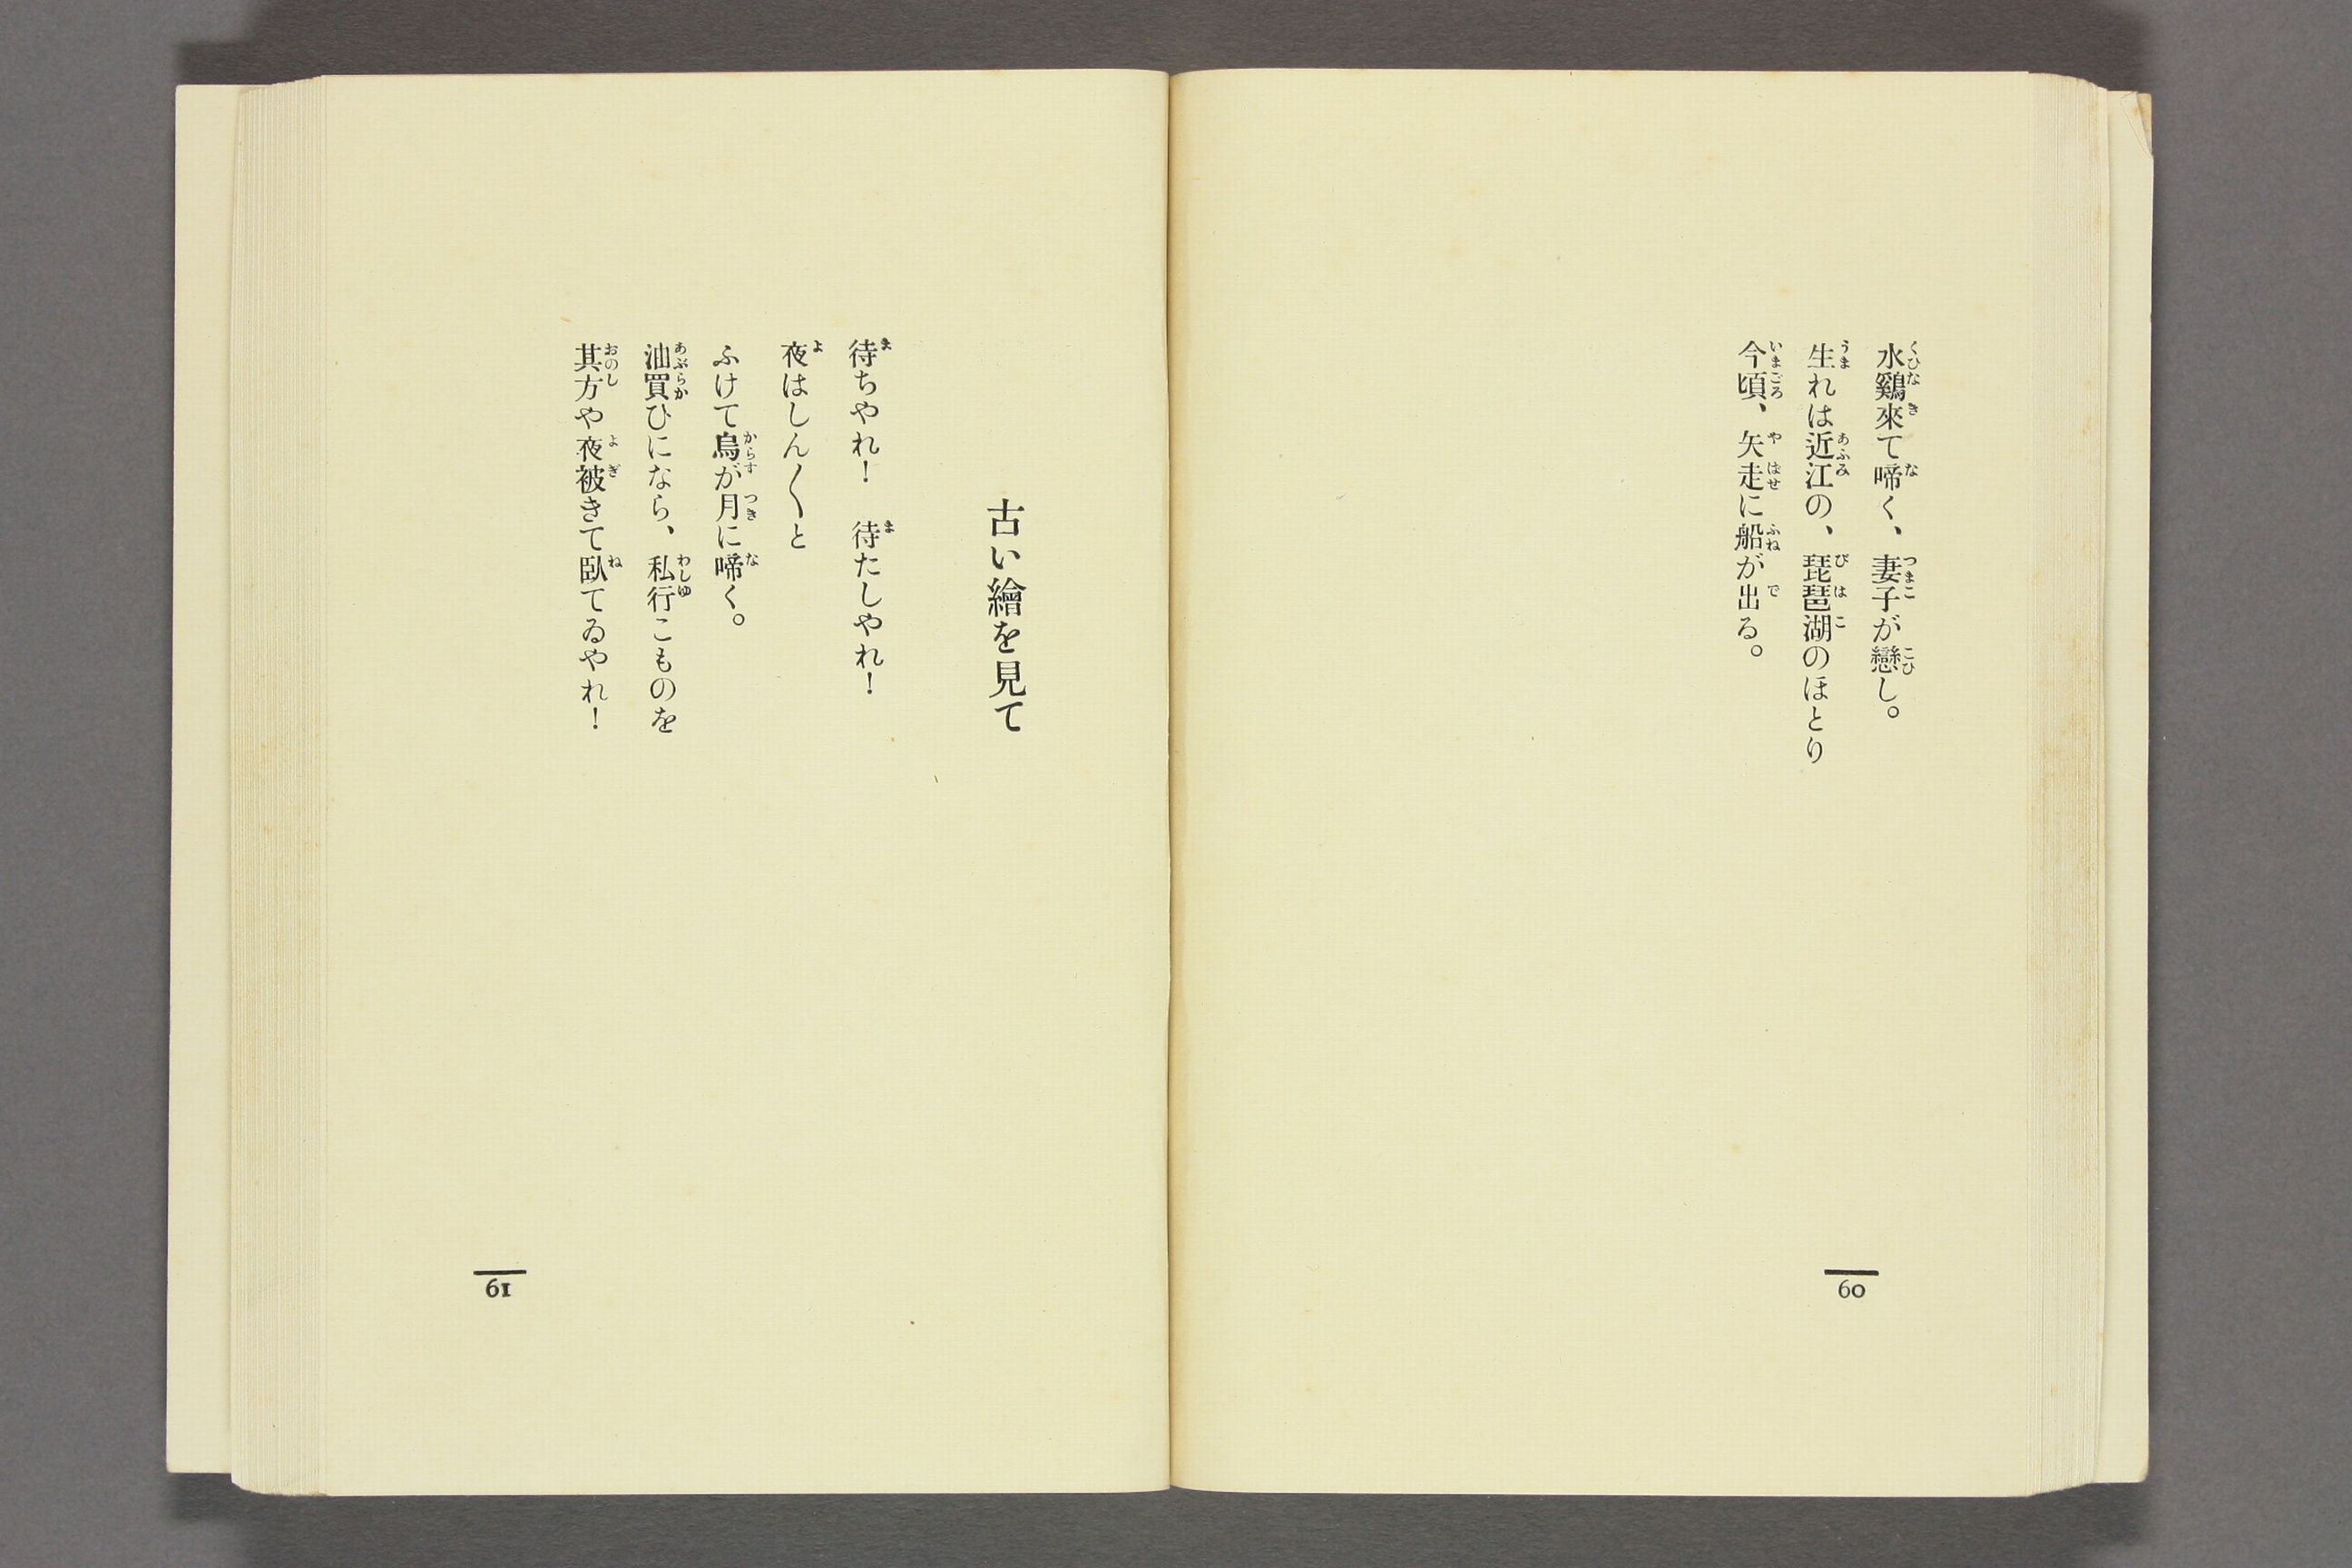 水鷄來て啼く、妻子が戀し。
生れは近江の、琵琶湖のほとり
今頃、矢走に船が出る。
60
古い繪を見て
待ちやれ！　待たしやれ！
夜はしん〱と
ふけて烏が月に啼く。
油買ひになら、私行こものを
其方や夜被きて臥てゐやれ！
61